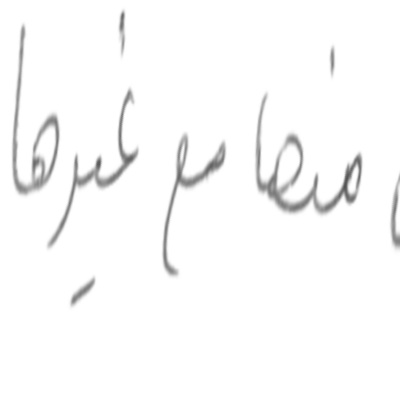 منها مع غيرها